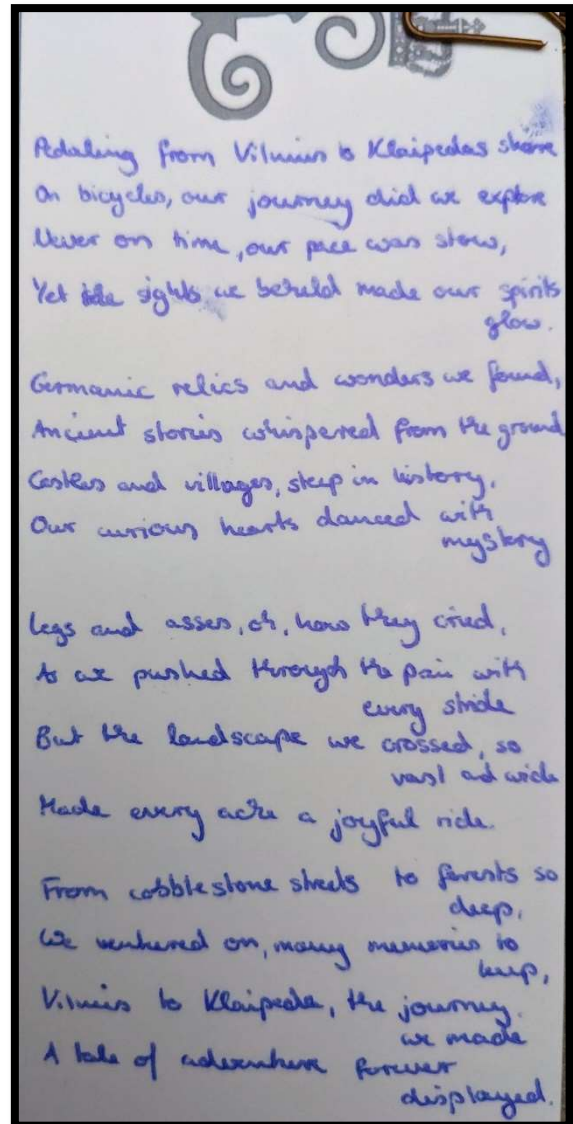 Pedaling from Vilnius to Klaipedas shore
On bicycles, our journey did we explore
Never on time, our pace was slow,
Yet the sights we beheld made our spirits
glow.
Germanic relics and wonders we found,
Ancient stories whisperred from the ground
Castles and villages, steep in history,
Our curious hearts danced with
mystery
Legs and asses, oh, how they cried,
As we pushed through the pain with
every stride
But the landscape we crossed, so
vast ad wide
Made every ache a joyful ride.
From cobblestone streets to forests so
deep,
We ventured on, many memories to
keep,
Vilnius to Klaipeda, the journey.
we made
A tale of adventure forever
displayed.